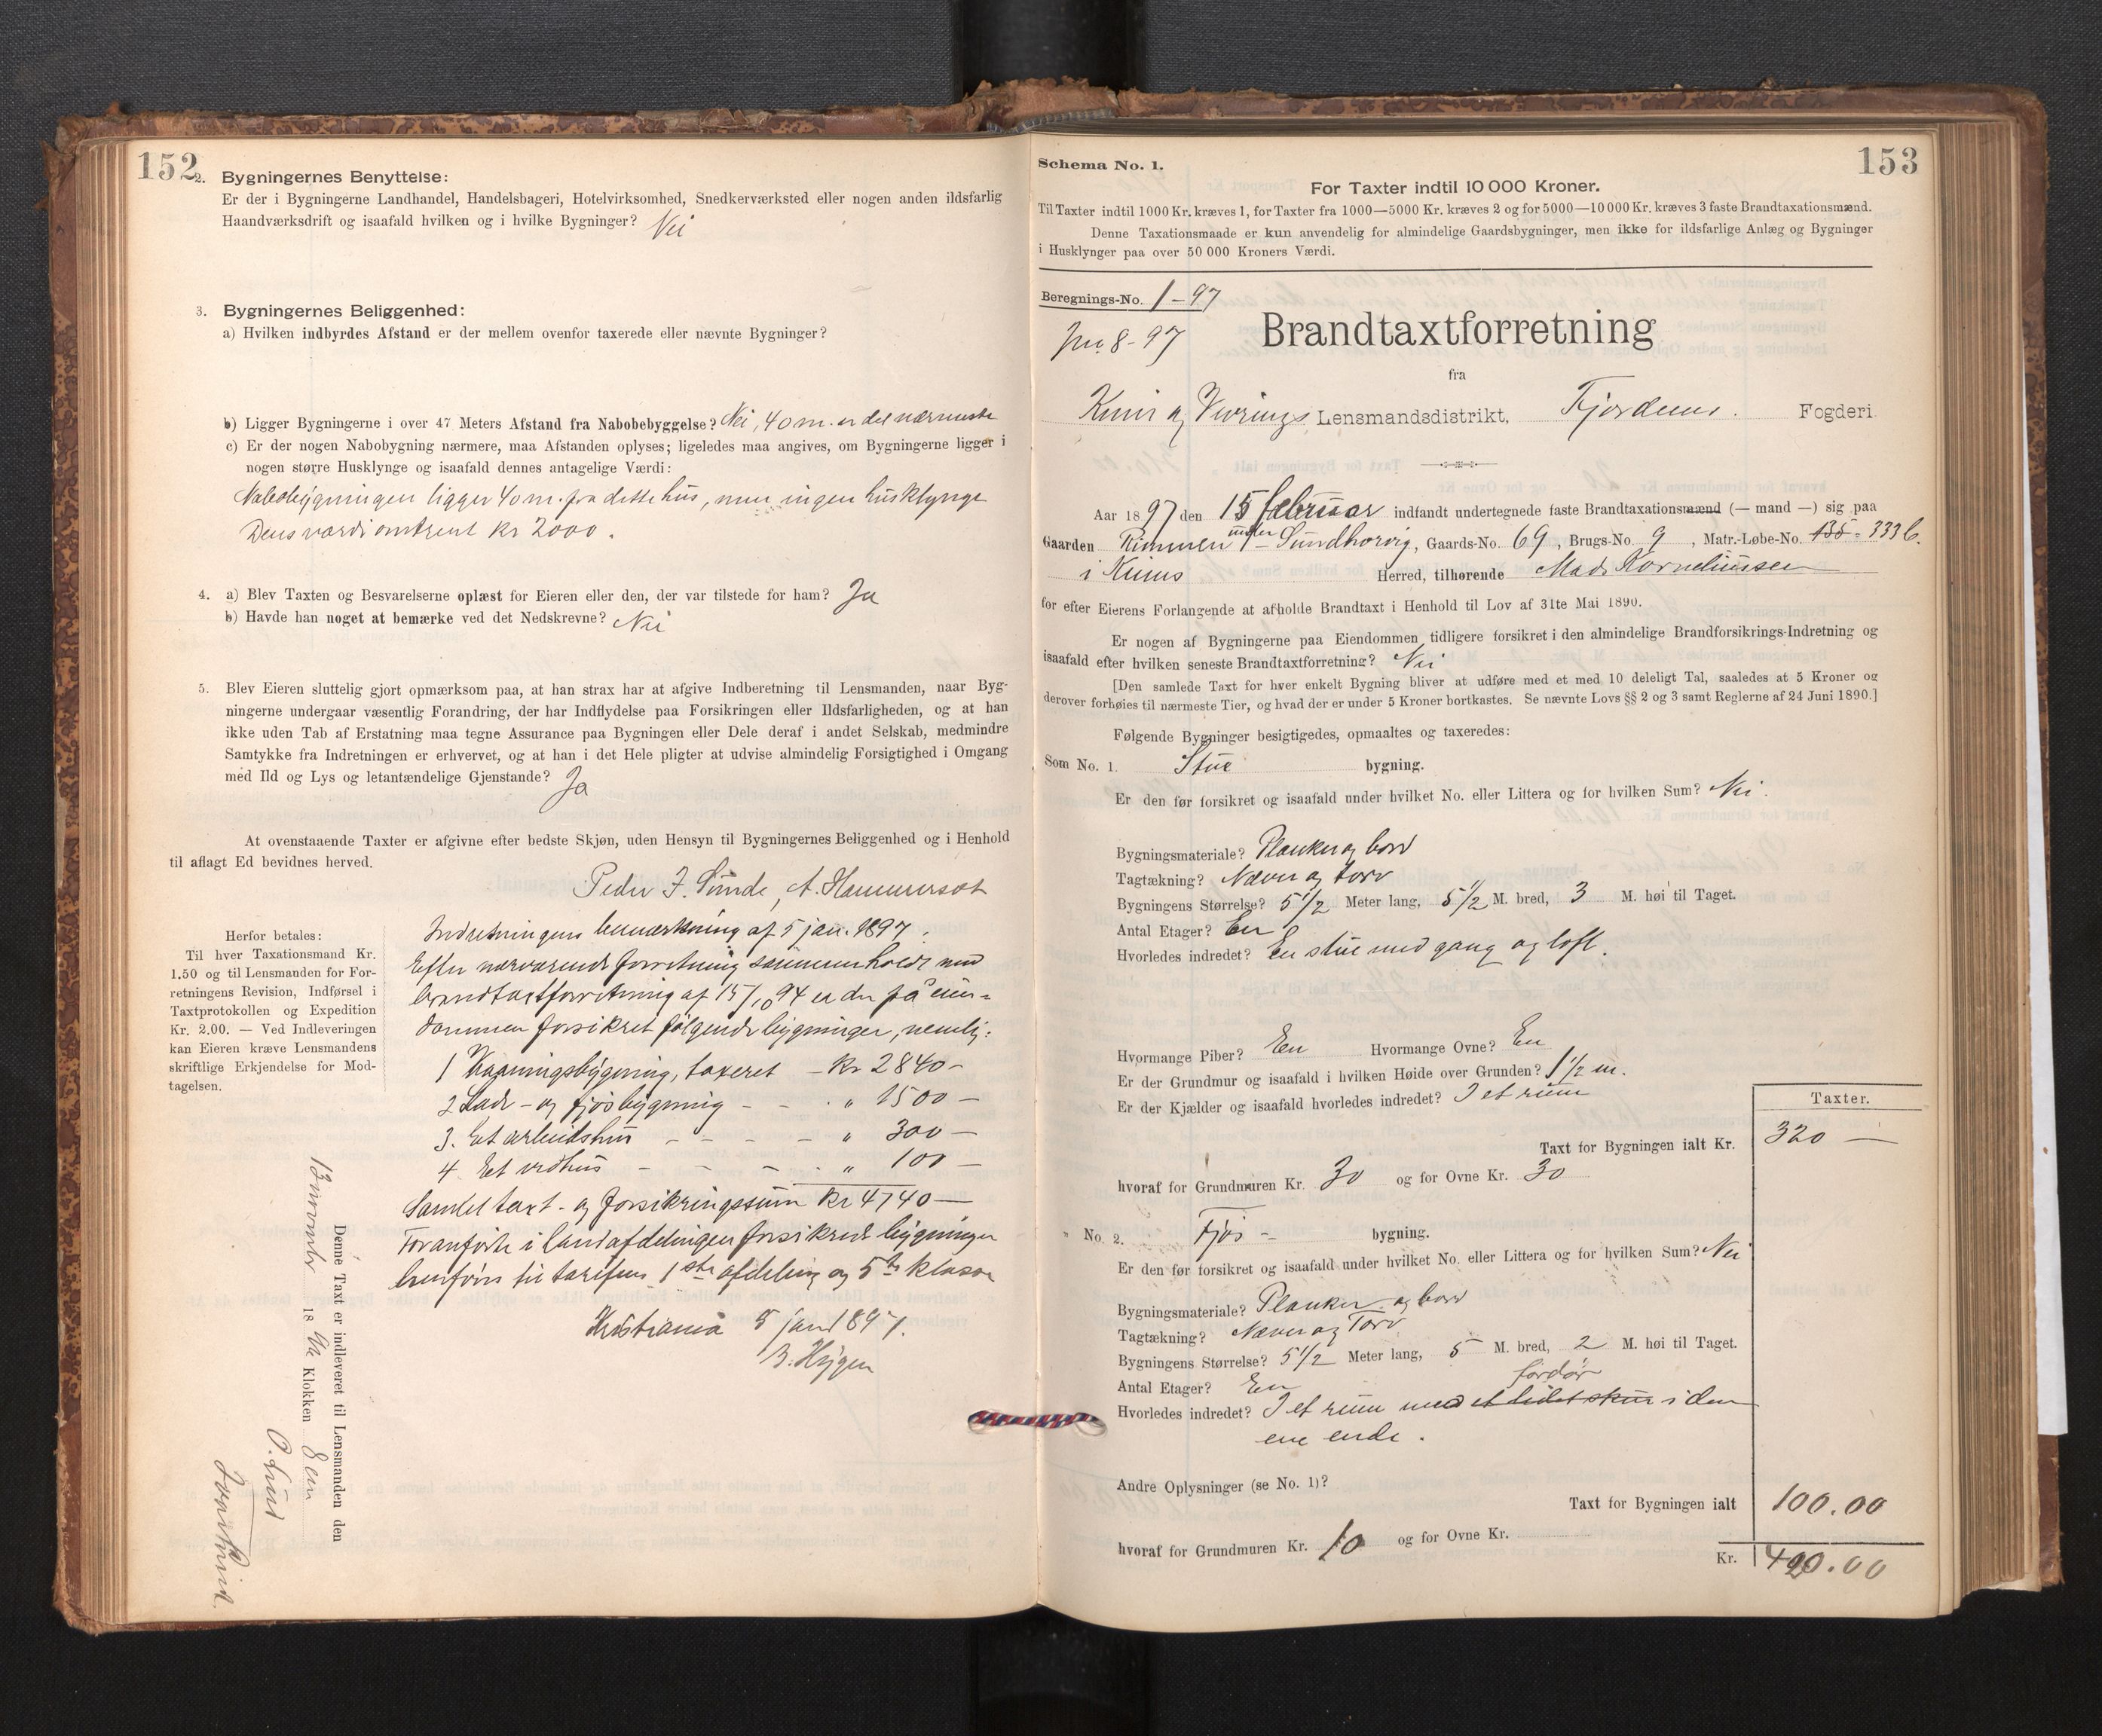 152
2. Bygningernes Benyttelse:
Er der i Bygningerne Landhandel, Handelsbageri, Hotelvirksomhed, Snedkerværksted eller nogen anden ildsfarlig
Haandværksdrift og isaafald hvilken og i hvilke Bygninger? Nei
3. Bygningernes Beliggenhed:
a) Hvilken indbyrdes Afstand er der mellem ovenfor taxerede eller nævnte Bygninger?
b) Ligger Bygningerne i over 47 Meters Afstand fra Nabobebyggelse? Nei, 40 m. er det nærmeste
c) Er der nogen Nabobygning nærmere, maa Afstanden oplyses; ligeledes maa angives, om Bygningerne ligger i
nogen større Husklynge og isaafald dennes antagelige Værdi:
Nabobygningen ligger 40 m. fra dette hus, men ingen husklynge
Dens værdi omtrent kr 2000.
4. a) Blev Taxten og Besvarelserne oplæst for Eieren eller den, der var tilstede for ham? Ja
b) Havde han noget at bemærke ved det Nedskrevne? Nei
5. Blev Eieren sluttelig gjort opmærksom paa, at han strax har at afgive Indberetning til Lensmanden, naar Byg-
ningerne undergaar væsentlig Forandring, der har Indflydelse paa Forsikringen eller Ildsfarligheden, og at han
ikke uden Tab af Erstatning maa tegne Assurance paa Bygningen eller Dele deraf i andet Selskab, medmindre
Samtykke fra Indretningen er erhvervet, og at han i det Hele pligter at udvise almindelig Forsigtighed i Omgang
med Ild og Lys og letantændelige Gjenstande? Ja
At ovenstaaende Taxter er afgivne efter bedste Skjøn, uden Hensyn til Bygningernes Beliggenhed og i Henhold
til aflagt Ed bevidnes herved.
Peder J. Sunde, A. Hammerset
Herfor betales:
Til hver Taxationsmand Kr.
1.50 og til Lensmanden for For-
retningens Revision, Indførsel i
Taxtprotokollen og Expedition
Kr. 2.00. — Ved Indleveringen
kan Eieren kræve Lensmandens
skriftlige Erkjendelse for Mod-
tagelsen.
Indretningens bemærkning af 5 jan. 1897.
Efter nærværende forretning sammenholdt med
brandtaxtforretning af 15/10 94 er der på eien-
dommen forsikret følgende bygninger, nemlig:
1 Vaaningsbygning, taxeret - Kr 2840 -
2 Lade- og fjøsbygning - - - " 1500 -
3. Et arbeidshus - - - - " 300 -
4 Et vedhus - - - - " 100 -
Samlet taxt- og forsikringssum kr 4740 —
Foranførte i landafdelingen forsikrede bygninger
henføres til tarifens 1ste afdeling og 5te klasse
Kristiania 5 jan 1897.
B. Hygen
Denne Taxt er indleveret til Lensmanden den
18 96 Klokken Een
O. Lund
153
Schema No. 1.
For Taxter indtil 10 000 Kroner.
Til Taxter indtil 1000 Kr. kræves 1, for Taxter fra 1000—5000 Kr. kræves 2 og for 5000—10 000 Kr. kræves 3 faste Brandtaxationsmænd.
Denne Taxationsmaade er kun anvendelig for almindelige Gaardsbygninger, men ikke for ildsfarlige Anlæg og Bygninger
i Husklynger paa over 50 000 Kroners Værdi.
Beregnings-No. 1-97
Jno. 8-97
Brandtaxtforretning
fra
Kinn og Vevrings Lensmandsdistrikt, Fjordenes. Fogderi
Aar 1897 den 15 februar indfandt undertegnede faste Brandtaxationsmænd (— mand —) sig paa
Gaarden Rimmen under Sundhorvig, Gaards-No. 69, Brugs-No. 9, Matr.-Løbe-No. 135 - 333 b.
i Kinns Herred, tilhørende Mads Korneliussen
for efter Eierens Forlangende at afholde Brandtaxt i Henhold til Lov af 31te Mai 1890.
Er nogen af Bygningerne paa Eiendommen tidligere forsikret i den almindelige Brandforsikrings-Indretning og
isaafald efter hvilken seneste Brandtaxtforretning? Nei
[Den samlede Taxt for hver enkelt Bygning bliver at udføre med et med 10 deleligt Tal, saaledes at 5 Kroner og
derover forhøies til nærmeste Tier, og hvad der er under 5 Kroner bortkastes. Se nævnte Lovs §§ 2 og 3 samt Reglerne af 24 Juni 1890.]
Følgende Bygninger besigtigedes, opmaaltes og taxeredes:
Som No. 1. Stue bygning.
Er den før forsikret og isaafald under hvilket No. eller Littera og for hvilken Sum? Nei.
Bygningsmateriale? Planker og bord
Tagtækning? Næver og torv
Bygningens Størrelse? 5 1/2 Meter lang, 5 1/2 M. bred, 3 M. høi til Taget.
Antal Etager? En
Hvorledes indredet? En stue med gang og loft.
Hvormange Piber? En Hvormange Ovne? En
Er der Grundmur og isaafald i hvilken Høide over Grunden? 1 1/2 m.
Er der Kjælder og isaafald hvorledes indredet? I et rum
Taxter.
Taxt for Bygningen ialt Kr. 320 —
hvoraf for Grundmuren Kr. 30 og for Ovne Kr. 30
" No. 2. Fjøs - bygning.
Er den før forsikret og isaafald under hvilket No. eller Littera og for hvilken Sum? Nei
Bygningsmateriale? Planker og bord
Tagtækning? Næver og Torv
Bygningens Størrelse? 5 1/2 Meter lang, 5 M. bred, 2 M. høi til Taget.
Antal Etager? En
fordør
Hvorledes indredet? I et rum med et lidet skur i den
ene ende.
Andre Oplysninger (se No. 1)?
Taxt for Bygningen ialt 100.00
hvoraf for Grundmuren Kr. 10 og for Ovne Kr.
Kr. 420.00